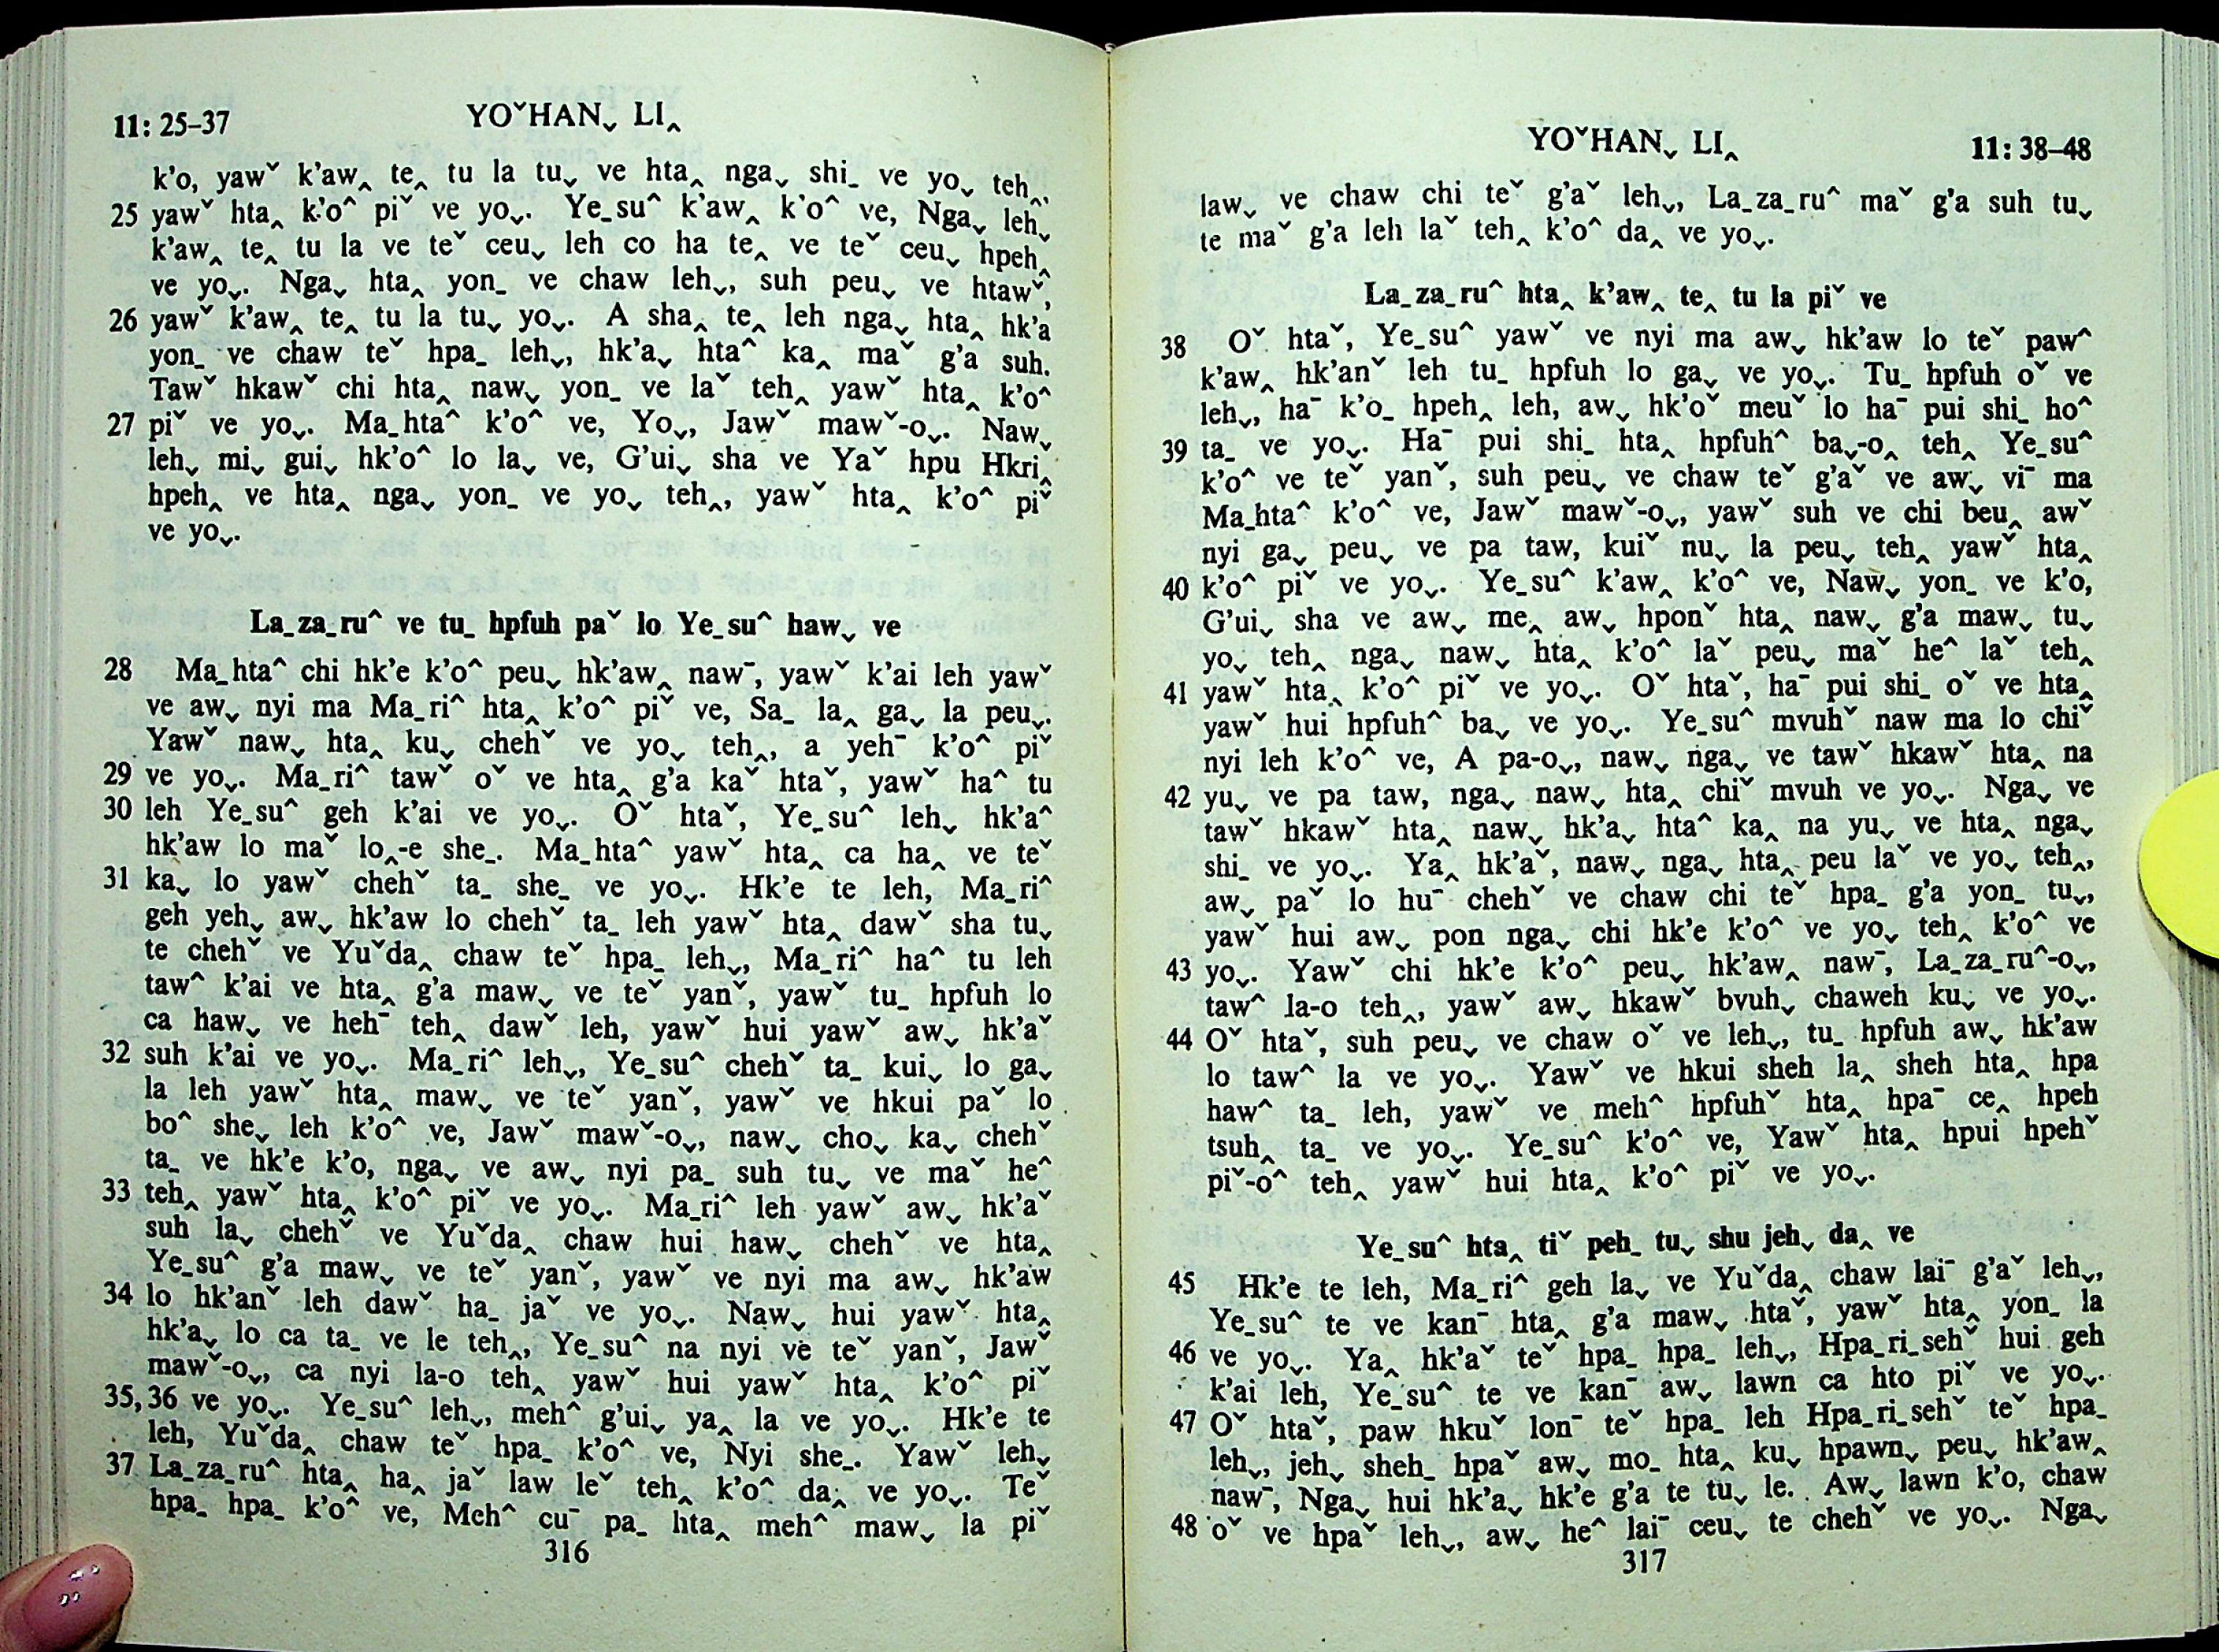 11: 25–37
YOˇHAN˯ LI‸
k’o, yawˇ k’aw‸ te‸ tu la tu˯ ve hta‸ nga˯ shi_ ve yo˯ teh‸,
25 yawˇ hta‸ k’o^ piˇ ve yo˯. Ye_su^ k’aw‸ k’o^ ve, Nga˯ leh˯
k’aw‸ te‸ tu la ve teˇ ceu˯ leh co ha te‸ ve teˇ ceu˯ hpeh‸
ve yo˯. Nga˯ hta‸ yon_ ve chaw leh˯, suh peu˯ ve htawˇ,
26 yawˇ k’aw‸ te‸ tu la tu˯ yo˯. A sha‸ te‸ leh nga˯ hta‸ hk’a
yon_ ve chaw teˇ hpa_ leh˯, hk’a˯ hta^ ka‸ maˇ g’a suh.
Tawˇ hkawˇ chi hta‸ naw˯ yon_ ve laˇ teh‸ yawˇ hta‸ k’o^
27 piˇ ve yo˯. Ma_hta^ k’o^ ve, Yo˯, Jawˇ mawˇ-o˯. Naw˯
leh˯ mi˯ gui˯ hk’o^ lo la˯ ve, G’ui˯ sha ve Yaˇ hpu Hkri‸
hpeh‸ ve hta‸ nga˯ yon_ ve yo˯ teh‸, yawˇ hta‸ k’o^ piˇ
ve yo˯.
La_za_ru^ ve tu_ hpfuh paˇ lo Ye_su^ haw˯ ve
28 Ma_hta^ chi hk’e k’o^ peu˯ hk’aw‸ naw¯, yawˇ k’ai leh yawˇ
ve aw˯ nyi ma Ma_ri^ hta‸ k’o^ piˇ ve, Sa_ la‸ ga˯ la peu˯.
Yawˇ naw˯ hta‸ ku˯ chehˇ ve yo˯ teh‸, a yeh¯ k’o^ piˇ
29 ve yo˯. Ma_ri^ tawˇ oˇ ve hta‸ g’a kaˇ htaˇ, yawˇ ha^ tu
30 leh Ye_su^ geh k’ai ve yo˯. Oˇ htaˇ, Ye_su^ leh˯ hk’a^
hk’aw lo maˇ lo‸-e she_. Ma_hta^ yawˇ hta‸ ca ha‸ ve teˇ
31 ka˯ lo yawˇ chehˇ ta_ she_ ve yo˯. Hk’e te leh, Ma_ri^
geh yeh˯ aw˯ hk’aw lo chehˇ ta_ leh yawˇ hta‸ dawˇ sha tu˯
te chehˇ ve Yuˇda‸ chaw teˇ hpa_ leh˯, Ma_ri^ ha^ tu leh
taw^ k’ai ve hta‸ g’a maw˯ ve teˇ yanˇ, yawˇ tu_ hpfuh lo
ca haw˯ ve heh¯ teh‸ dawˇ leh, yawˇ hui yawˇ aw˯ hk’aˇ
32 suh k’ai ve yo˯. Ma_ri^ leh˯, Ye_su^ chehˇ ta_ kui˯ lo ga˯
la leh yawˇ hta‸ maw˯ ve teˇ yanˇ, yawˇ ve hkui paˇ lo
bo^ she˯ leh k’o^ ve, Jawˇ mawˇ-o˯, naw˯ cho˯ ka˯ chehˇ
ta_ ve hk’e k’o, nga˯ ve aw˯ nyi pa_ suh tu˯ ve maˇ he^
33 teh‸ yawˇ hta‸ k’o^ piˇ ve yo˯. Ma_ri^ leh yawˇ aw˯ hk’aˇ
suh la˯ chehˇ ve Yuˇda‸ chaw hui haw˯ chehˇ ve hta‸
Ye_su^ g’a maw˯ ve teˇ yanˇ, yawˇ ve nyi ma aw˯ hk’aw
34 lo hk’anˇ leh dawˇ ha_ jaˇ ve yo˯. Naw˯ hui yawˇ hta‸
hk’a˯ lo ca ta_ ve le teh‸, Ye_su^ na nyi ve teˇ yanˇ, Jawˇ
mawˇ-o˯, ca nyi la-o teh‸ yawˇ hui yawˇ hta‸ k’o^ piˇ
35, 36 ve yo˯. Ye_su^ leh˯, meh^ g’ui˯ ya‸ la ve yo˯. Hk’e te
leh, Yuˇda‸ chaw teˇ hpa_ k’o^ ve, Nyi she_. Yawˇ leh˯
37 La_za_ru^ hta‸ ha‸ jaˇ law leˇ teh‸ k’o^ da‸ ve yo˯. Teˇ
hpa_ hpa_ k’o^ ve, Meh^ cu¯ pa_ hta‸ meh^ maw˯ la piˇ
316
YOˇHAN˯ LI‸
11: 38–48
law˯ ve chaw chi teˇ g’aˇ leh˯, La_za_ru^ maˇ g’a suh tu˯
te maˇ g’a leh laˇ teh‸ k’o^ da‸ ve yo˯.
La_za_ru^ hta‸ k’aw‸ te‸ tu la piˇ ve
38 Oˇ htaˇ, Ye_su^ yawˇ ve nyi ma aw˯ hk’aw lo teˇ paw^
k’aw‸ hk’anˇ leh tu_ hpfuh lo ga˯ ve yo˯. Tu_ hpfuh oˇ ve
leh˯, ha¯ k’o_ hpeh‸ leh, aw˯ hk’oˇ meuˇ lo ha¯ pui shi_ ho^
39 ta_ ve yo˯. Ha¯ pui shi_ hta‸ hpfuh^ ba˯-o‸ teh‸ Ye_su^
k’o^ ve teˇ yanˇ, suh peu˯ ve chaw teˇ g’aˇ ve aw˯ vi¯ ma
Ma_hta^ k’o^ ve, Jawˇ mawˇ-o˯, yawˇ suh ve chi beu‸ awˇ
nyi ga˯ peu˯ ve pa taw, kuiˇ nu˯ la peu˯ teh‸ yawˇ hta‸
40 k’o^ piˇ ve yo˯. Ye_su^ k’aw‸ k’o^ ve, Naw˯ yon_ ve k’o,
G’ui˯ sha ve aw˯ me‸ aw˯ hponˇ hta‸ naw˯ g’a maw˯ tu˯
yo˯ teh‸ nga˯ naw˯ hta‸ k’o^ laˇ peu˯ maˇ he^ laˇ teh‸
41 yawˇ hta‸ k’o^ piˇ ve yo˯. Oˇ htaˇ, ha¯ pui shi_ oˇ ve hta‸
yawˇ hui hpfuh^ ba˯ ve yo˯. Ye_su^ mvuhˇ naw ma lo chiˇ
nyi leh k’o^ ve, A pa-o˯, naw˯ nga˯ ve tawˇ hkawˇ hta‸ na
42 yu˯ ve pa taw, nga˯ naw˯ hta‸ chiˇ mvuh ve yo˯. Nga˯ ve
tawˇ hkawˇ hta‸ naw˯ hk’a˯ hta^ ka‸ na yu˯ ve hta‸ nga˯
shi_ ve yo˯. Ya‸ hk’aˇ, naw˯ nga˯ hta‸ peu laˇ ve yo˯ teh‸,
aw˯ paˇ lo hu¯ chehˇ ve chaw chi teˇ hpa_ g’a yon_ tu˯,
yawˇ hui aw˯ pon nga˯ chi hk’e k’o^ ve yo˯ teh‸ k’o^ ve
43 yo˯. Yawˇ chi hk’e k’o^ peu˯ hk’aw‸ naw¯, La_za_ru^-o˯,
taw^ la-o teh‸, yawˇ aw˯ hkawˇ bvuh˯ chaweh ku˯ ve yo˯.
44 Oˇ htaˇ, suh peu˯ ve chaw oˇ ve leh˯, tu_ hpfuh aw˯ hk’aw
lo taw^ la ve yo˯. Yawˇ ve hkui sheh la‸ sheh hta‸ hpa
haw^ ta_ leh, yawˇ ve meh^ hpfuhˇ hta‸ hpa¯ ce‸ hpeh
tsuh‸ ta_ ve yo˯. Ye_su^ k’o^ ve, Yawˇ hta‸ hpui hpehˇ
piˇ-o^ teh‸ yawˇ hui hta‸ k’o^ piˇ ve yo˯.
Ye_su^ hta‸ tiˇ peh_ tu˯ shu jeh˯ da‸ ve
45 Hk’e te leh, Ma_ri^ geh la˯ ve Yuˇda‸ chaw lai¯ g’aˇ leh˯,
Ye_su^ te ve kan¯ hta‸ g’a maw˯ htaˇ, yawˇ hta‸ yon_ la
46 ve yo˯. Ya‸ hk’aˇ teˇ hpa_ hpa_ leh˯, Hpa_ri_sehˇ hui geh
k’ai leh, Ye_su^ te ve kan¯ aw˯ lawn ca hto piˇ ve yo˯.
47 Oˇ htaˇ, paw hkuˇ lon¯ teˇ hpa_ leh Hpa_ri_sehˇ teˇ hpa_
leh˯, jeh˯ sheh_ hpaˇ aw˯ mo_ hta‸ ku˯ hpawn˯ peu˯ hk’aw‸
naw¯, Nga˯ hui hk’a˯ hk’e g’a te tu˯ le. Aw˯ lawn k’o, chaw
48 oˇ ve hpaˇ leh˯, aw˯ he^ lai¯ ceu˯ te chehˇ ve yo˯. Nga˯
317